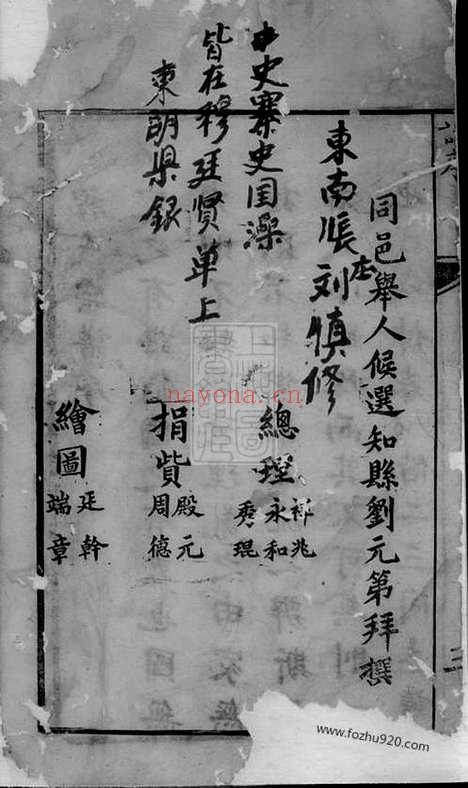 同邑舉人候選知縣劉元第拜撰
東南張庄刘慎修
中史寨史国深
皆在穆廷贤单上
東明梁銀
總理
祥兆
永和
秀琨
捐貲
殿元
周德
繪圖
廷幹
端章
nayona.cn
www.fozhu920.com